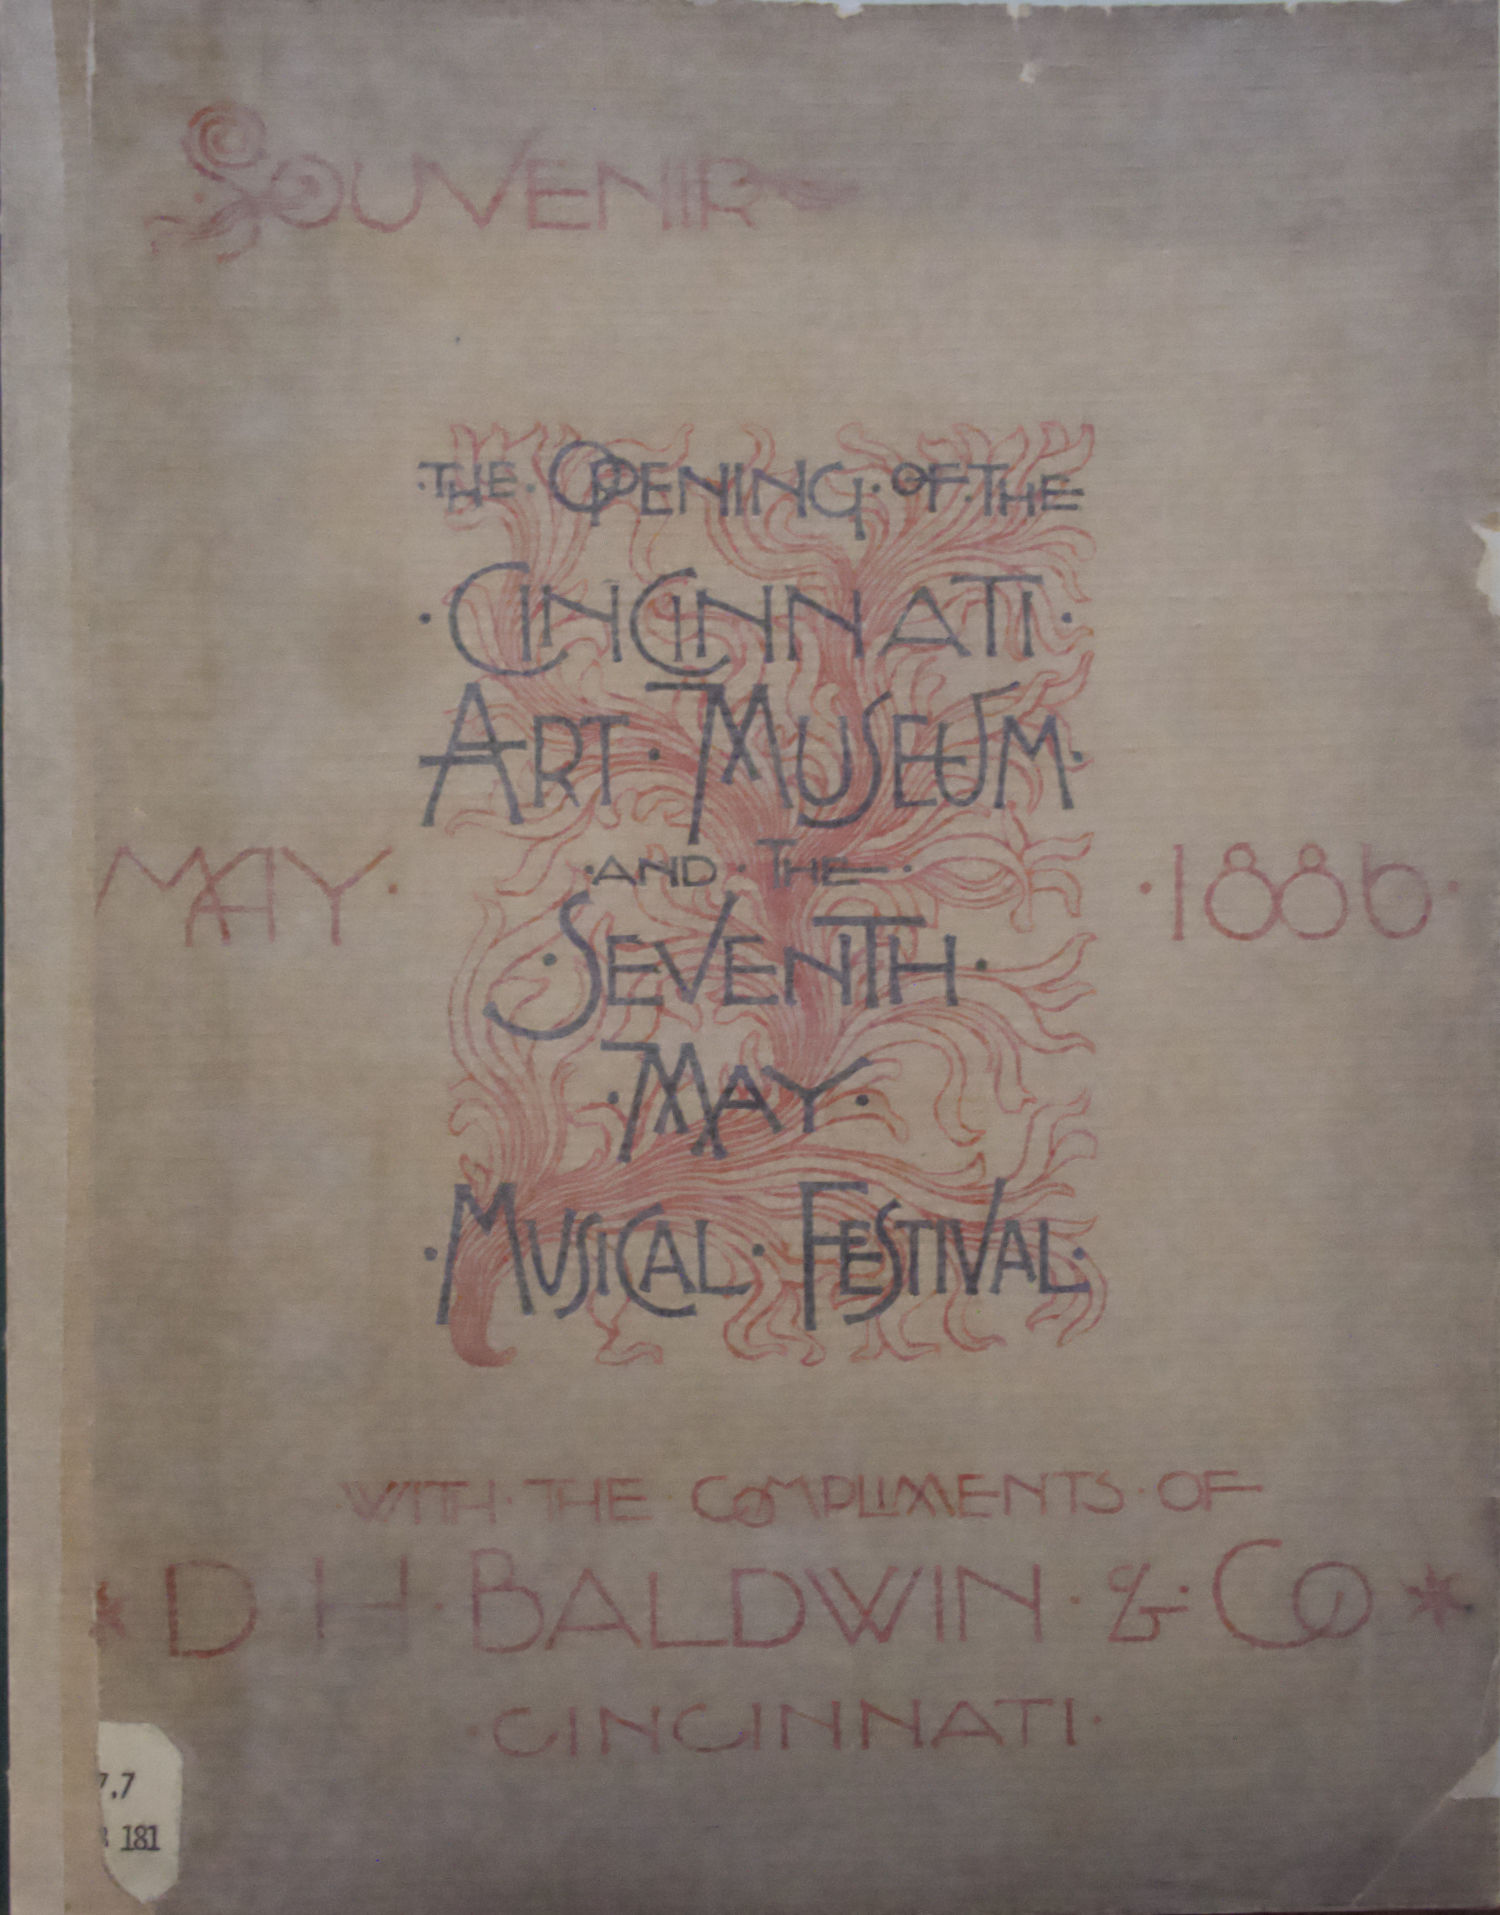 SOUVENIR
·THE·OPENING·OF·THE·
·CINCINNATI·
ART·MUSEUM·
·AND·THE·
·SEVENTH·
·MAY·
·MUSICAL·FESTIVAL·
MAY· ·1886·
WITH·THE·COMPLIMENTS·OF
D·H·BALDWIN·&·CO
·CINCINNATI·
7.7
181